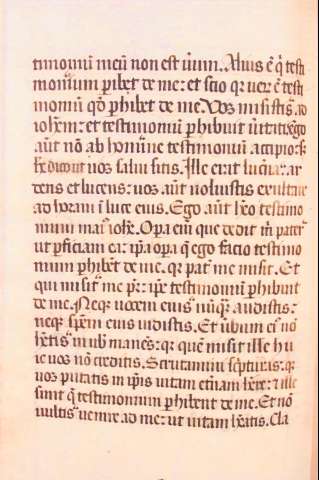 timoniū meū non est uerū. Alius ē q̇ testi
moniuum peribet de me: et scio qr uer̄ ē testi
monium qd̄ phibet de me. Vos misistis ad
ioħem: et testimoniū phibuit ueritati. ego
aut̄ nō ab homine testimonium accipio: s;
hec dico ut uos salui sitis. Ille erat lucerna ar
dens et lucens: uos aut̄ uoluistis exultare
ad horam ī luce eius. Ego aut̄ habeo testimo
nium maius ioħe. Opa eni que dedit m̄ pater
ut pficiam ea: ipa opa q̄ ego facio testimo
nium phibent de me. qr pat̄ me misit. Et
qui misit me pr̄: ipe testimoniū phibuit
de me. Neqr uocem eius ūqr audistis:
neqr spēm eius uidistis. Et ūbum eius nō
hētis ī uob̄ manēs: qr quē misit ille hu
ic uos nō creditis. Scrutamini scpturas: qr
uos putatis in ipis uitam eternam hēre: et ille
sunt q̄ testimonium phibent de me. Et nō
uultis uenire ad me: ut uitam hēatis. Cla